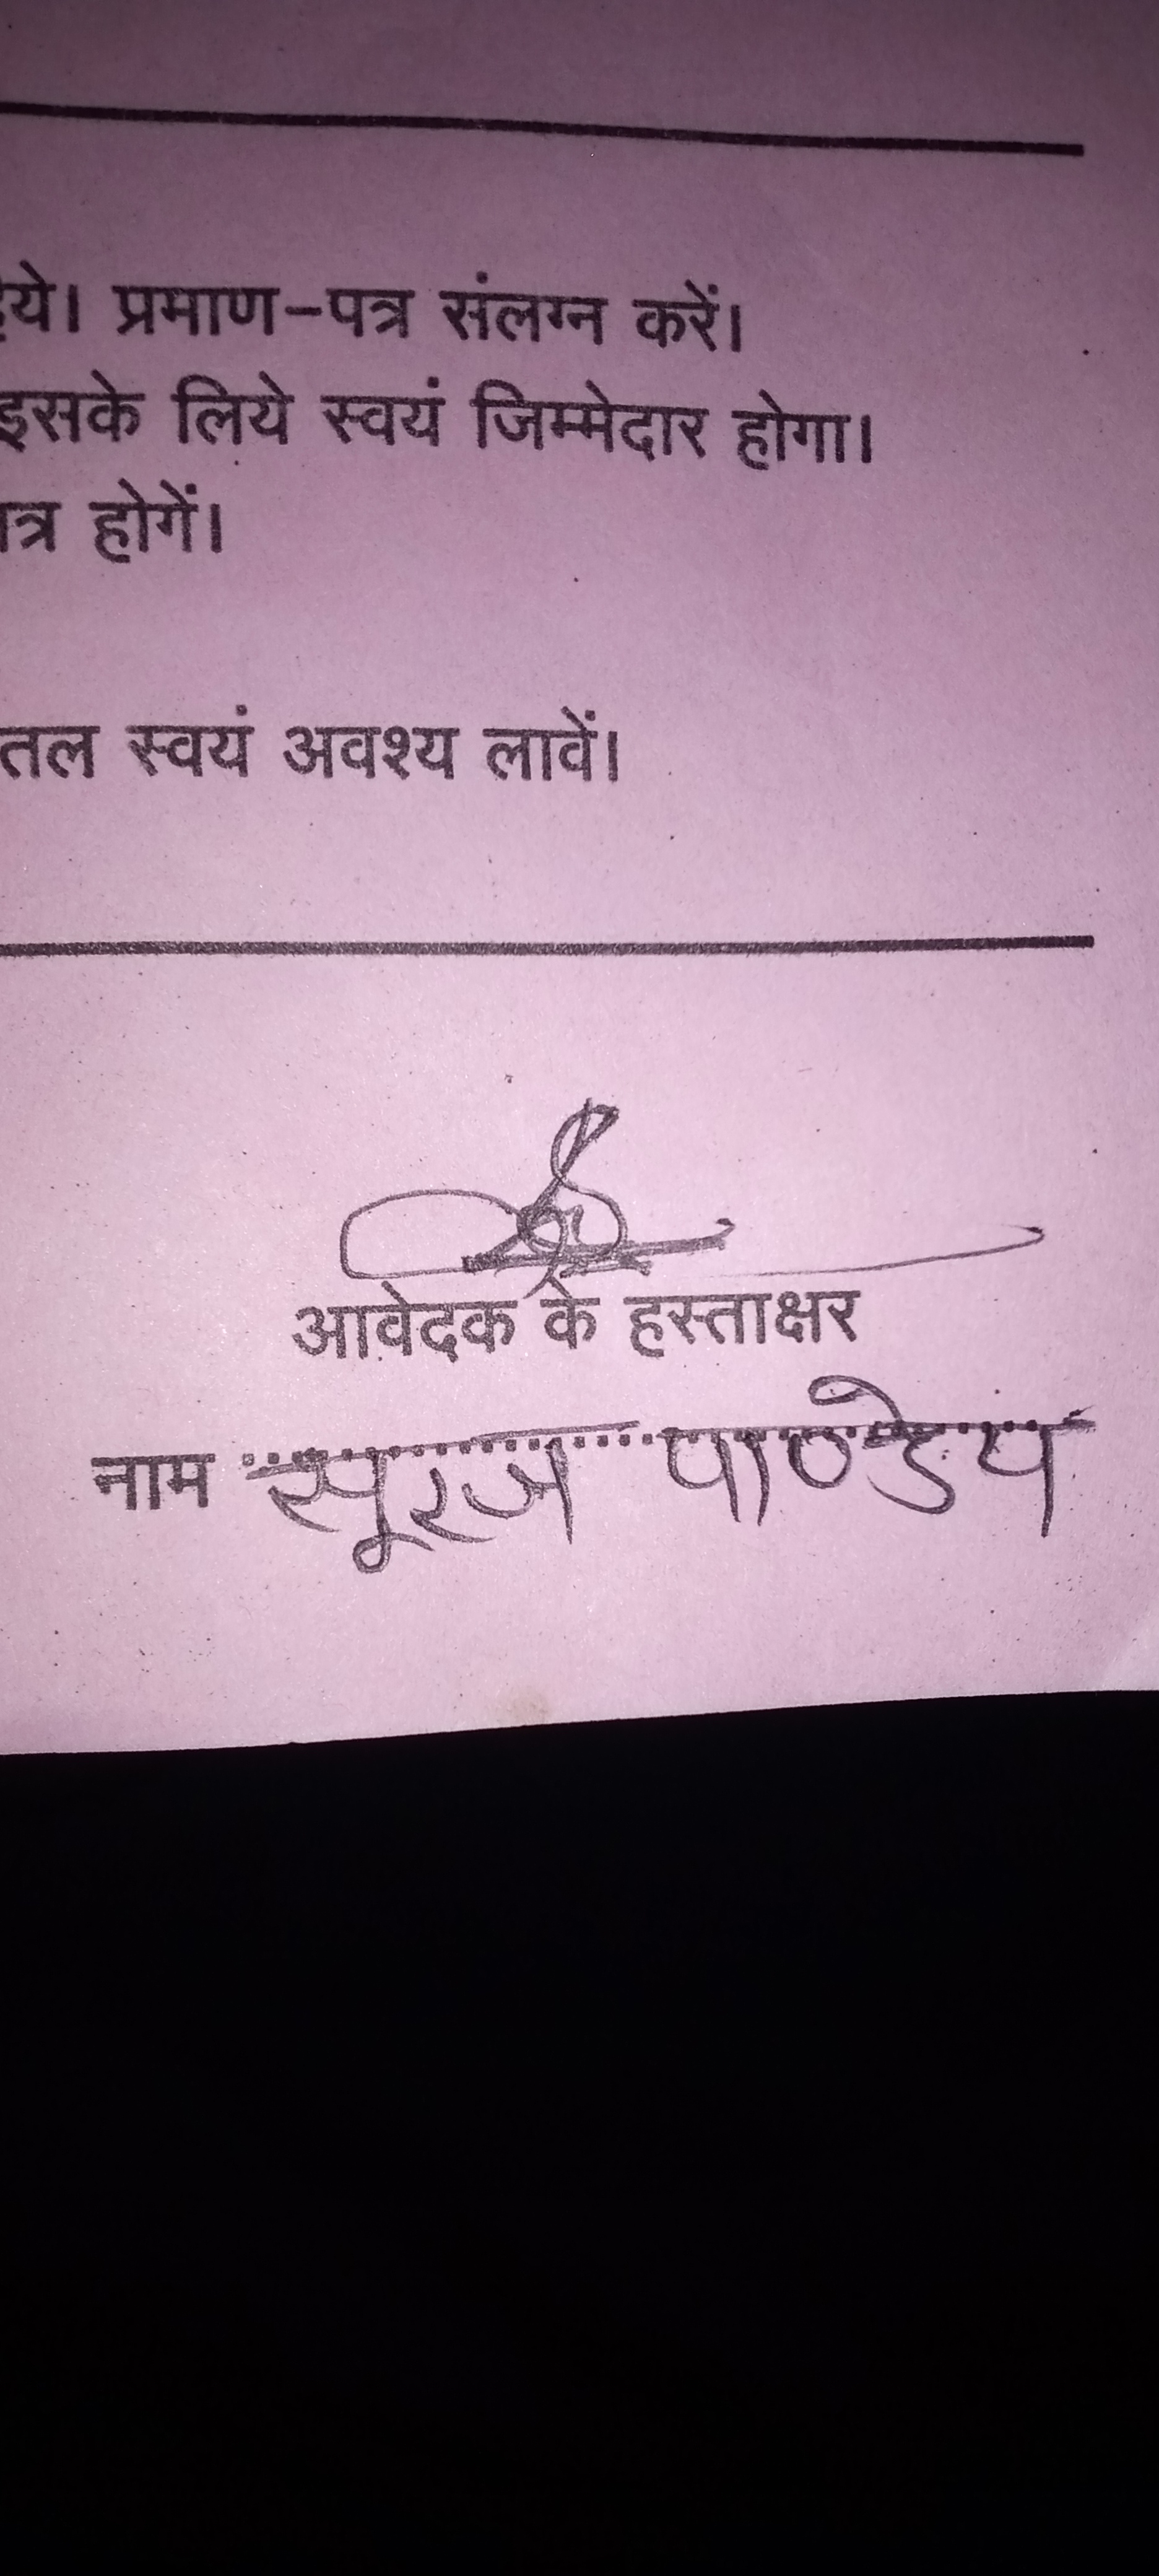 प्रमाण-पत्र संलग्न करें।
इसके लिये स्वयं जिम्मेदार होगा।
होगें।
स्वयं अवश्य लावें।
आवेदक के हस्ताक्षर
नाम सूरज पाण्डेय